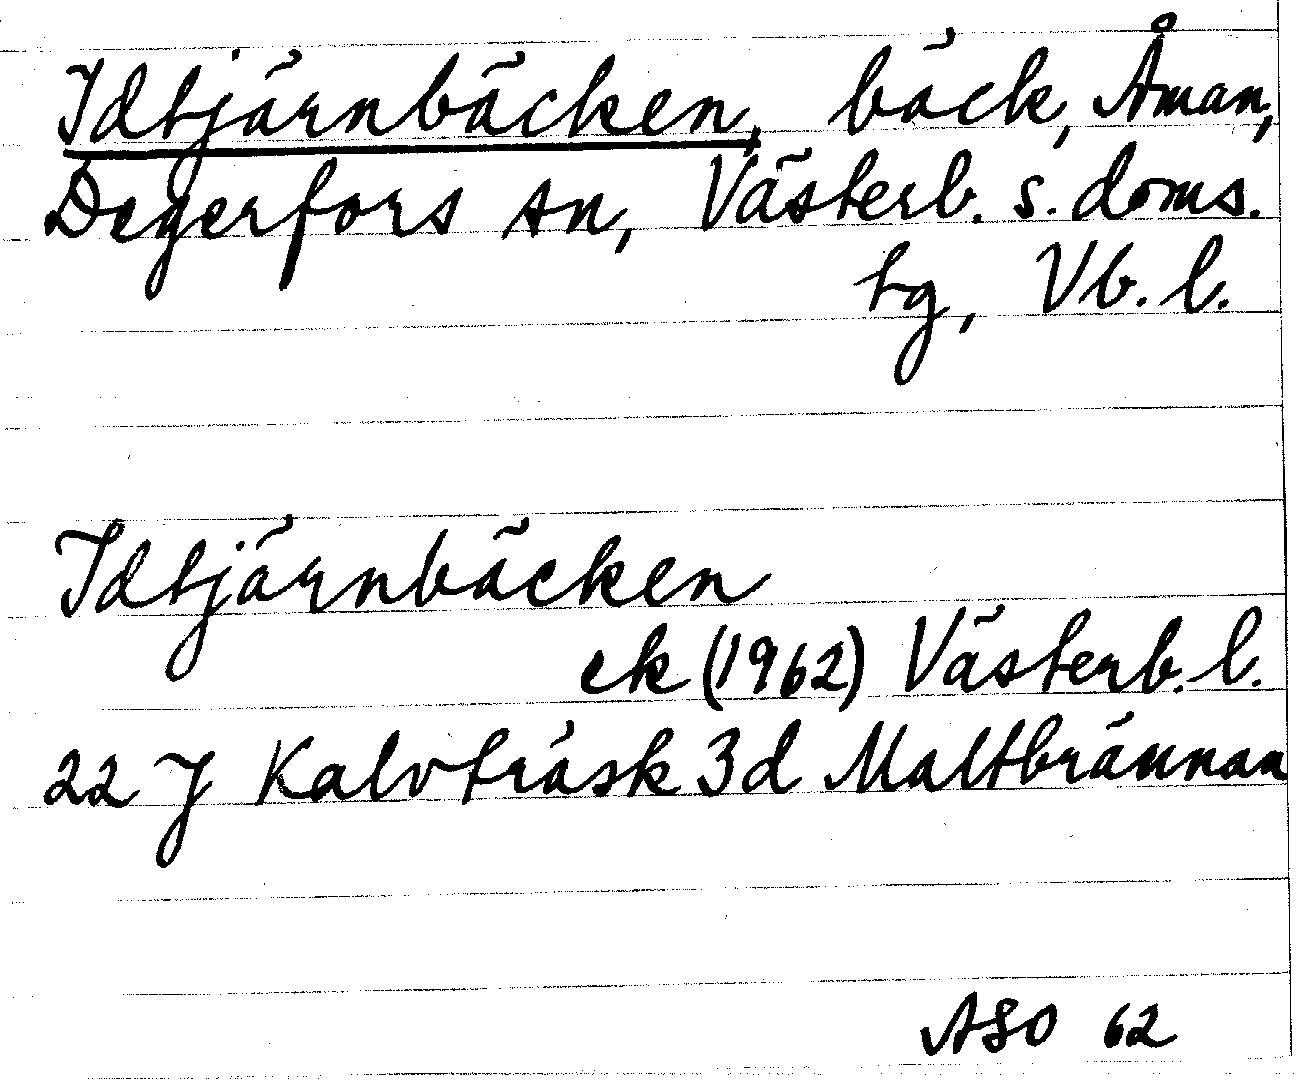 Idtjärnbäcken, bäck, Åman,
Degerfors sn, Västerb. s. doms.
tg, Vb. l.
Idtjärnbäcken
ek (1962) Västerb. l.
22 J Kalvträsk 3d Maltbrännan
ASO 62